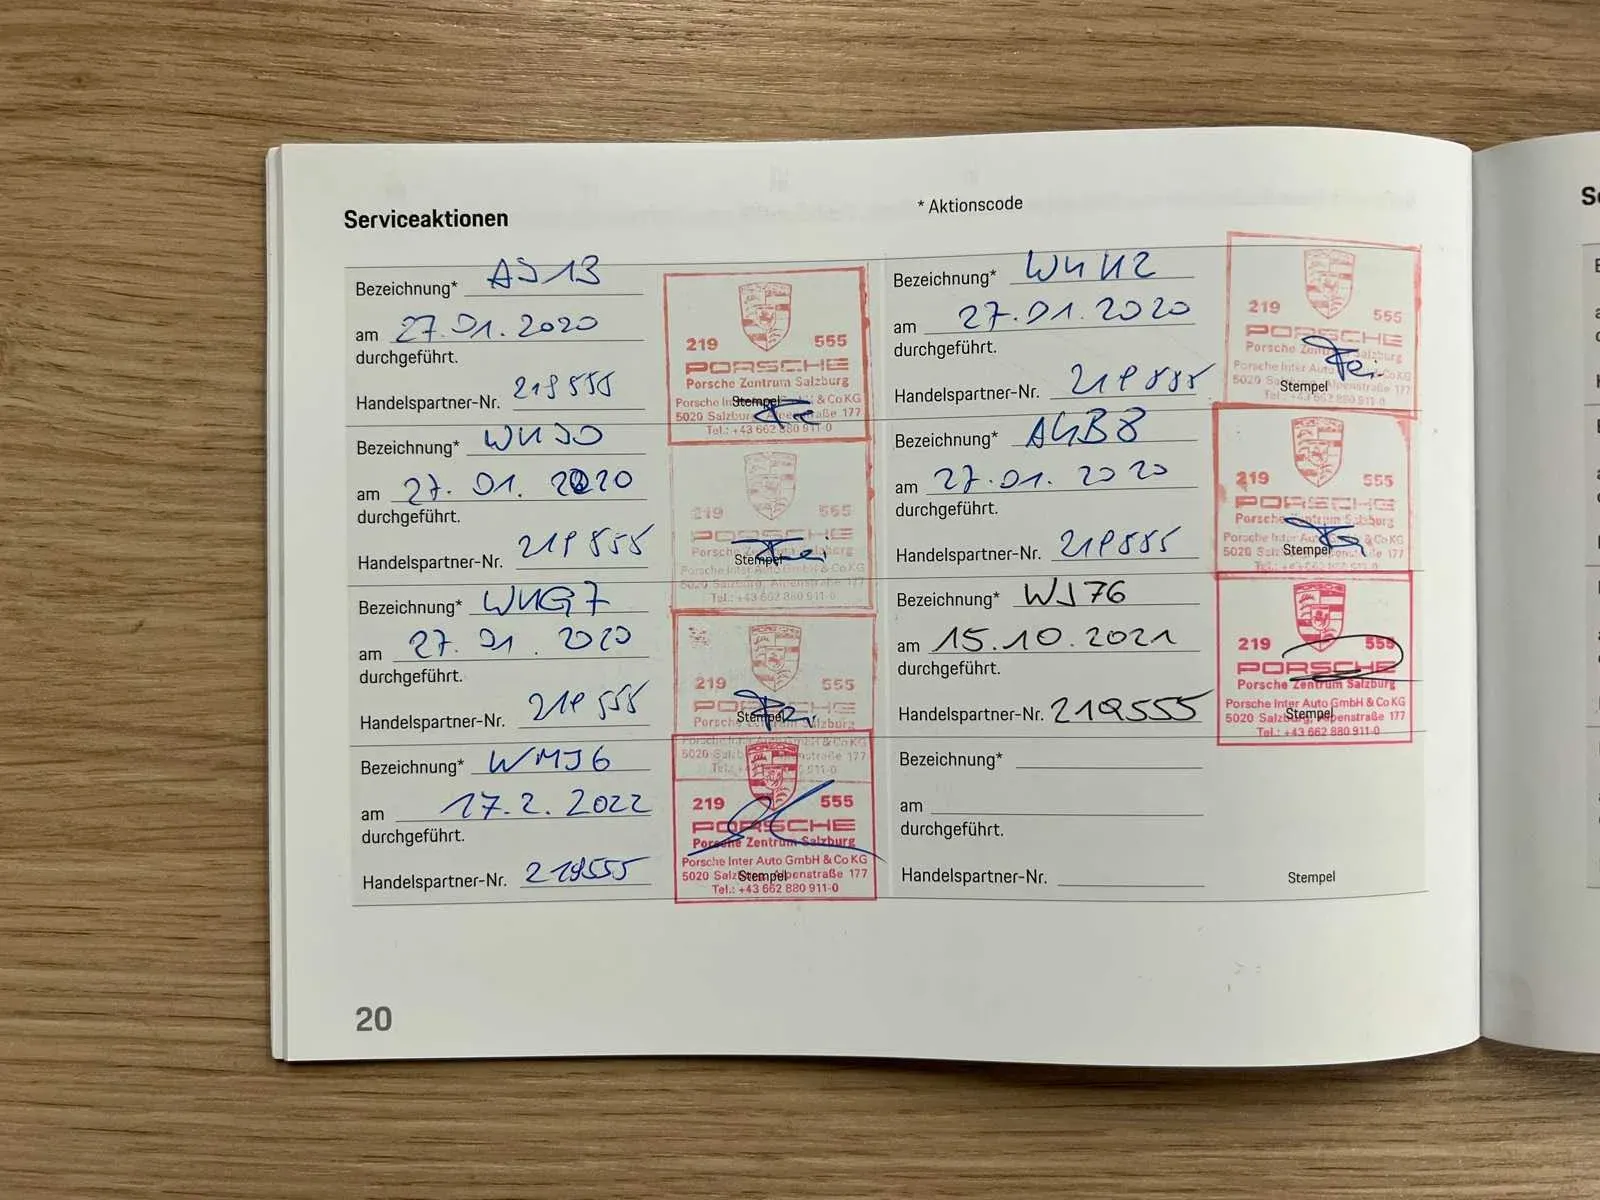 Serviceaktionen
* Aktionscode
Bezeichnung* AJ13
am 27.01.2020
durchgeführt.
Handelspartner-Nr. 219555
Stempel
219 555
PORSCHE
Porsche Zentrum Salzburg
Porsche Inter Auto GmbH & Co KG
5020 Salzburg, Alpenstraße 177
Tel.: +43 662 880 911-0
Bezeichnung*
am 27.01.2020
durchgeführt.
Handelspartner-Nr. 219555
Stempel
219 555
PORSCHE
Porsche Zentrum Salzburg
Porsche Inter Auto GmbH & Co KG
5020 Salzburg, Alpenstraße 177
Tel.: +43 662 880 911-0
Bezeichnung*
am 27.01.2020
durchgeführt.
Handelspartner-Nr. 219555
Stempel
219 555
PORSCHE
Porsche Zentrum Salzburg
Porsche Inter Auto GmbH & Co KG
5020 Salzburg, Alpenstraße 177
Bezeichnung* WMJ6
am 17.2.2022
durchgeführt.
Handelspartner-Nr. 219555
Stempel
219 555
PORSCHE
Porsche Zentrum Salzburg
Porsche Inter Auto GmbH & Co KG
5020 Salzburg, Alpenstraße 177
Tel.: +43 662 880 911-0
Bezeichnung*
am 27.01.2020
durchgeführt.
Handelspartner-Nr. 219555
Stempel
219 555
PORSCHE
Porsche Zentrum Salzburg
Porsche Inter Auto GmbH & Co KG
5020 Salzburg, Alpenstraße 177
Tel.: +43 662 880 911-0
Bezeichnung*
am 27.01.2020
durchgeführt.
Handelspartner-Nr. 219555
Stempel
219 555
PORSCHE
Porsche Zentrum Salzburg
Porsche Inter Auto GmbH & Co KG
5020 Salzburg, Alpenstraße 177
Bezeichnung* WJ76
am 15.10.2021
durchgeführt.
Handelspartner-Nr. 219555
Stempel
219 555
PORSCHE
Porsche Zentrum Salzburg
Porsche Inter Auto GmbH & Co KG
5020 Salzburg, Alpenstraße 177
Tel.: +43 662 880 911-0
Bezeichnung*
am
durchgeführt.
Handelspartner-Nr.
Stempel
20